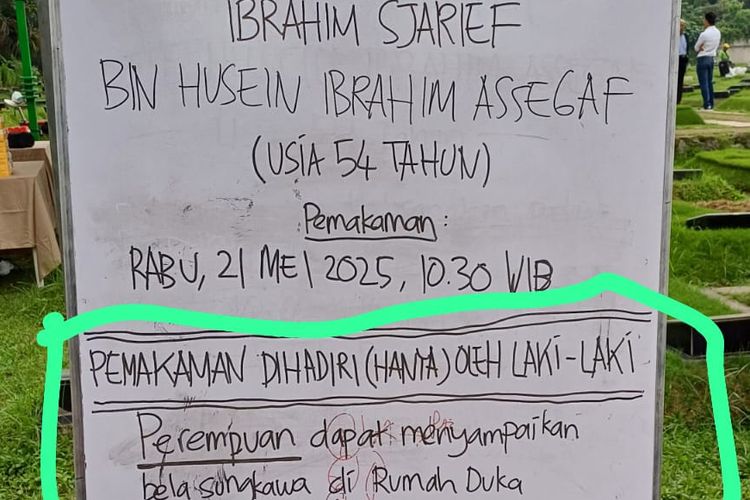 IBRAHIM SJARIEF
BIN HUSEIN IBRAHIM ASSEGAF
(USIA 54 TAHUN)
Pemakaman :
RABU, 21 MEI 2025, 10.30 WIB
PEMAKAMAN DIHADIRI (HANYA) OLEH LAKI-LAKI
Perempuan dapat menyampaikan
bela sungkawa di Rumah Duka